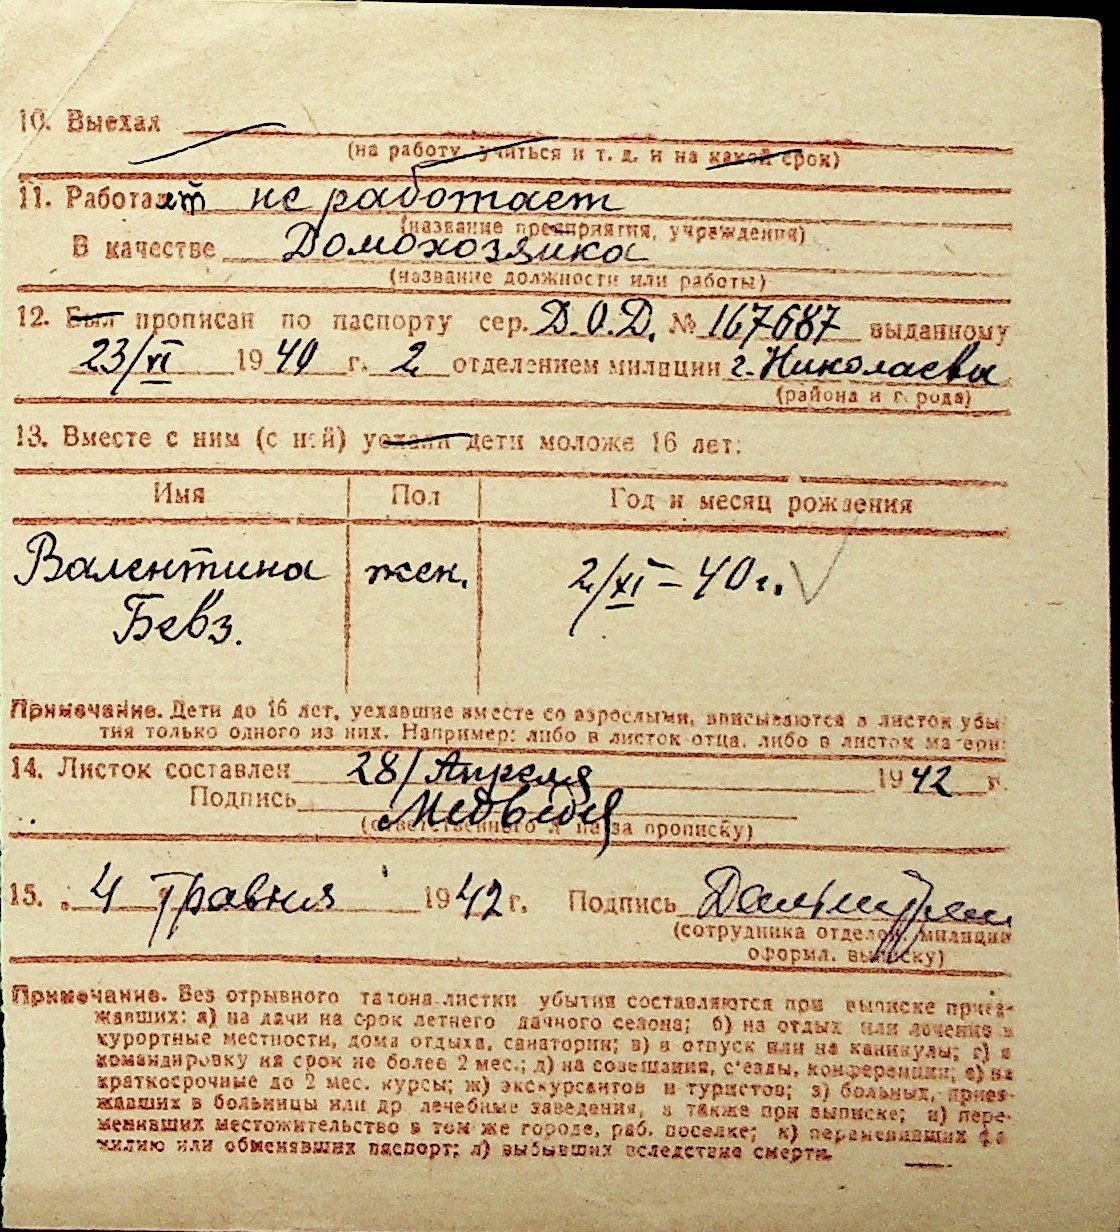 10. Выехал
(на работу, учиться и т. д. и на какой срок)
11. Работает не работает
(название предприятия, учреждения)
В качестве Домохозяйка
(название должности или работы)
12. Был прописан по паспорту сер. Д.О.Д. № 167687 выданному
23/VI 1940 г. 2 отделением милиции г. Николаевы
(района и города)
13. Вместе с ним (с ней) уехали дети моложе 16 лет:
Имя Пол Год и месяц рождения
Валентина жен. 2/XI – 40 г.
Бевз.
Примечание. Дети до 16 лет, уехавшие вместе со взрослыми, вписываются в листок убы-
тия только одного из них. Например: либо в листок отца, либо в листок матери.
14. Листок составлен 28/Апреля 1942 г.
Подпись Медведя
(ответственного л на за прописку)
15. 4 травня 1942 г. Подпись
(сотрудника отделен. милиции
оформл. выписку)
Примечание. Без отрывного талона листки убытия составляются при выписке приез-
жавших: а) на дачи на срок летнего дачного сезона; б) на отдых или лечение в
курортные местности, дома отдыха, санатории; в) в отпуск или на каникулы; г) в
командировку на срок не более 2 мес.; д) на совещания, с'езды, конференции; е) на
краткосрочные до 2 мес. курсы; ж) экскурсантов и туристов; з) больных, приез-
жавших в больницы или др лечебные заведения, а также при выписке; и) пере-
менивших местожительство в том же городе, раб. поселке; к) переменивших фа-
милию или обменявших паспорт; л) выбывших вследствие смерти.